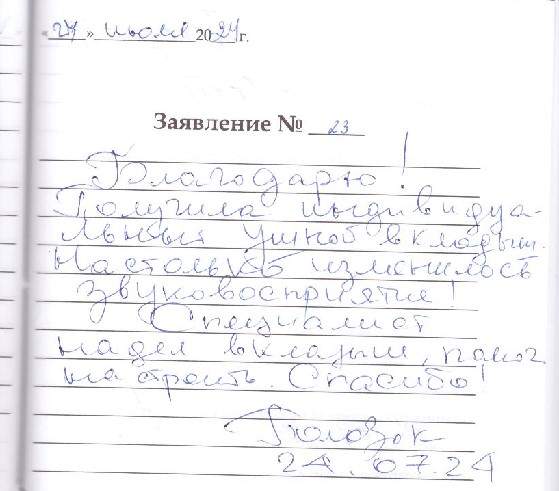 «24» июля 2024г.
Заявление № 23
Благодарю!
Получила индивидуа-
льный ушной вкладыш.
Настолько изменилось
звуковосприятие!
Специалист
надел вкладыш, помог
настроить. Спасибо!
24.07.24